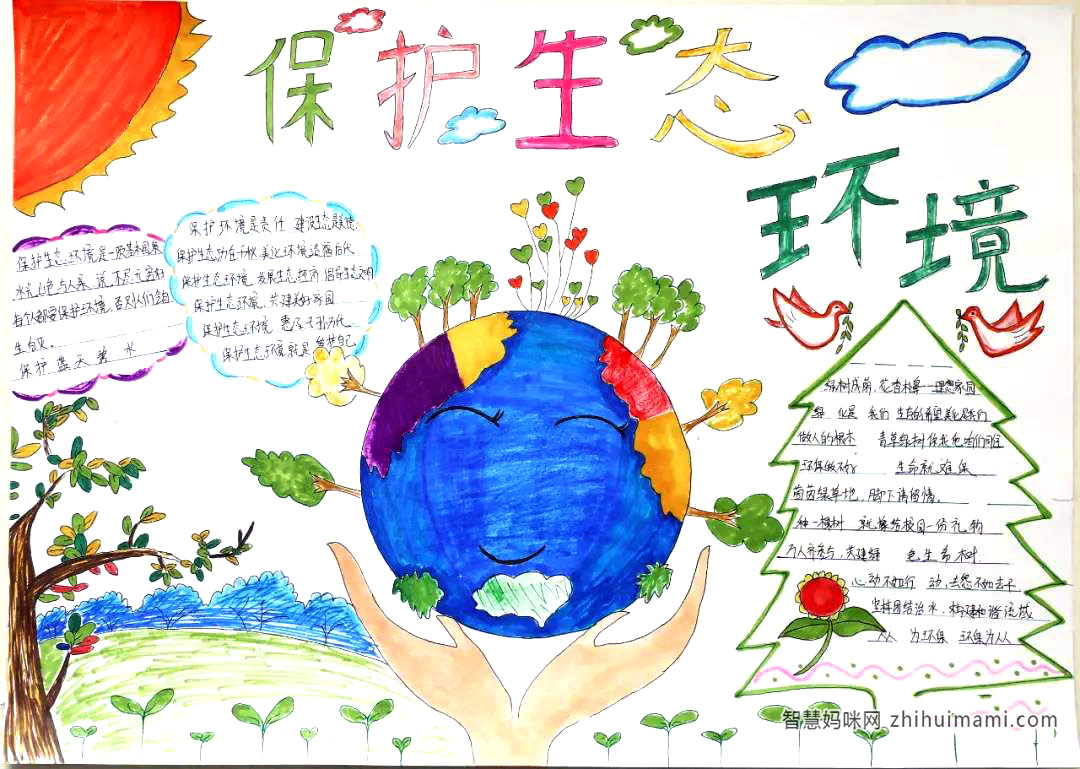 保护生态
环境
保护生态环境是一项基本国策
水长山色与人亲
每个人都要保护环境,否则人们会自
保护蓝天碧水
保护环境是责任 建设生态
保护生态功在千秋,美化环境造福后代
保护生态环境,发展生态经济,倡导生态文明
保护生态环境,共建美好家园
保护生态环境,惠及子孙万代
保护生态环境就是
绿树成荫,花香
绿化是我们生命的希望美化是我们
做人的根本 青草绿树
环保做不好 生命就难保
茵茵绿草地,脚下请留情。
种一棵树 就等给校园一份礼物
为人齐参与,共建绿色生命树
心动不如行动,去想不如去干
坚持团结治水,构建和谐流域
人人为环保 环保为人人
智慧妈咪网 zhihuimami.com